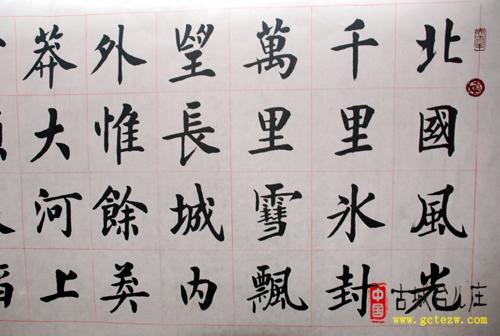 北國風光
千里氷封
萬里雪飄
望長城内
外惟餘莽
莽大河上
中國
www.gctezw.com